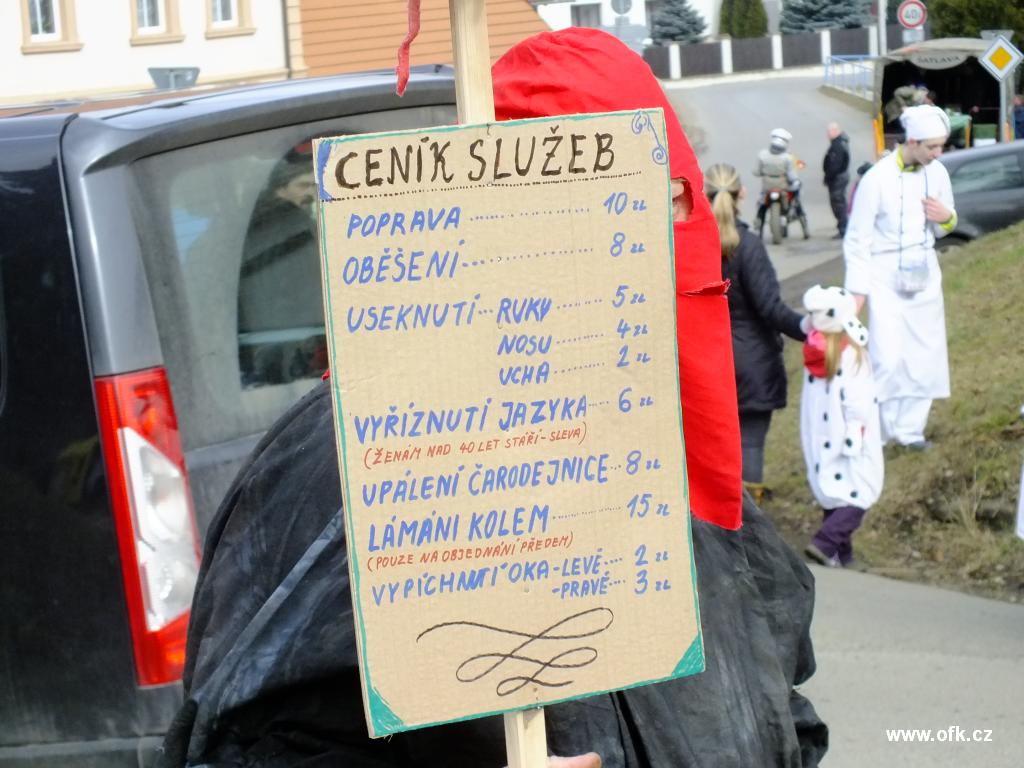 CENÍK SLUŽEB
POPRAVA ............... 10 zl
OBĚŠENÍ ............... 8 zl
USEKNUTÍ ... RUKY ....... 5 zl
NOSU ....... 4 zl
UCHA ........ 2 zl
VYŘÍZNUTÍ JAZYKA ... 6 zl
(ŽENÁM NAD 40 LET STÁŘÍ - SLEVA)
UPÁLENÍ ČARODEJNICE .. 8 zl
LÁMÁNI KOLEM .......... 15 zl
(POUZE NA OBJEDNÁNÍ PŘEDEM)
VYPÍCHNUTÍ OKA - LEVÉ .... 2 zl
- PRAVÉ ... 3 zl
40
ŠATLAVA
www.ofk.cz